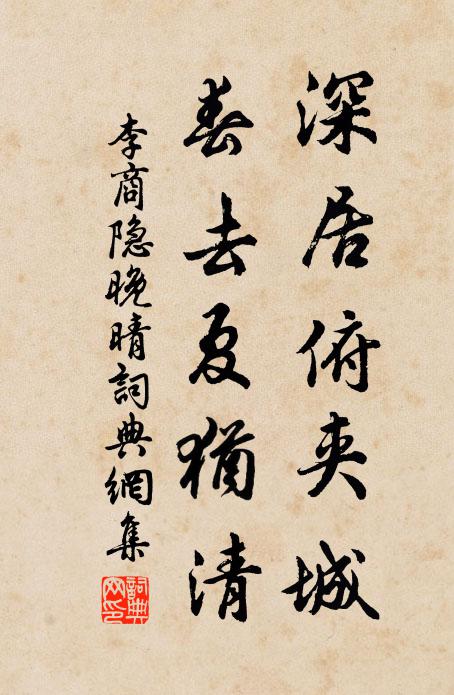 深居俯夹城
春去夏猶清
李商隐晚晴詞典網集
詞典網印